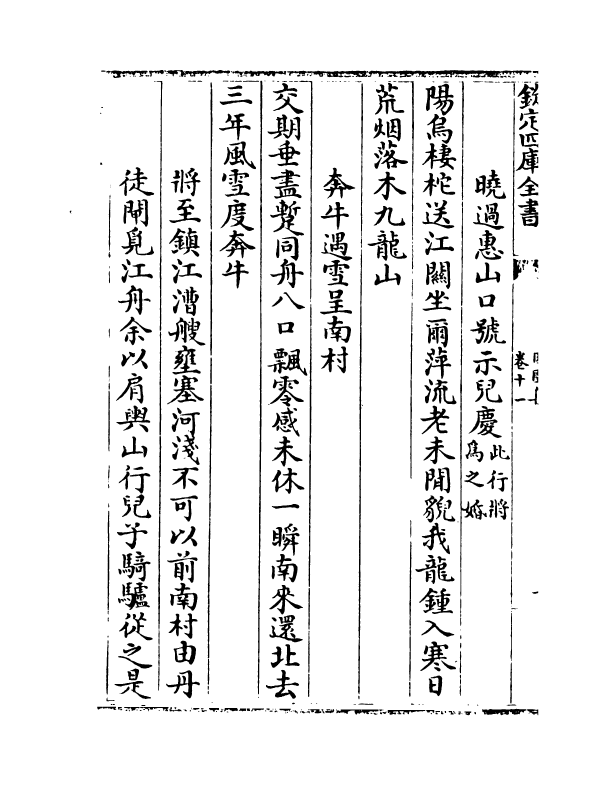 欽定四庫全書
卷十一
曉過惠山口號示兒慶此行將為之婚
陽烏棲柁送江關坐爾萍流老未閒貌我龍鍾入寒日
荒烟落木九龍山
奔牛遇雪呈南村
交期垂盡蹔同舟八口飄零感未休一瞬南來還北去
三年風雪度奔牛
將至鎮江漕艘壅塞河淺不可以前南村由丹
徒閘覓江舟余以肩輿山行兒子騎驢從之是